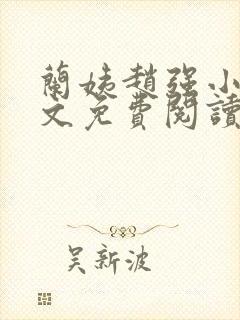 蘭姨趙強小
文免費閱讀
吴新波